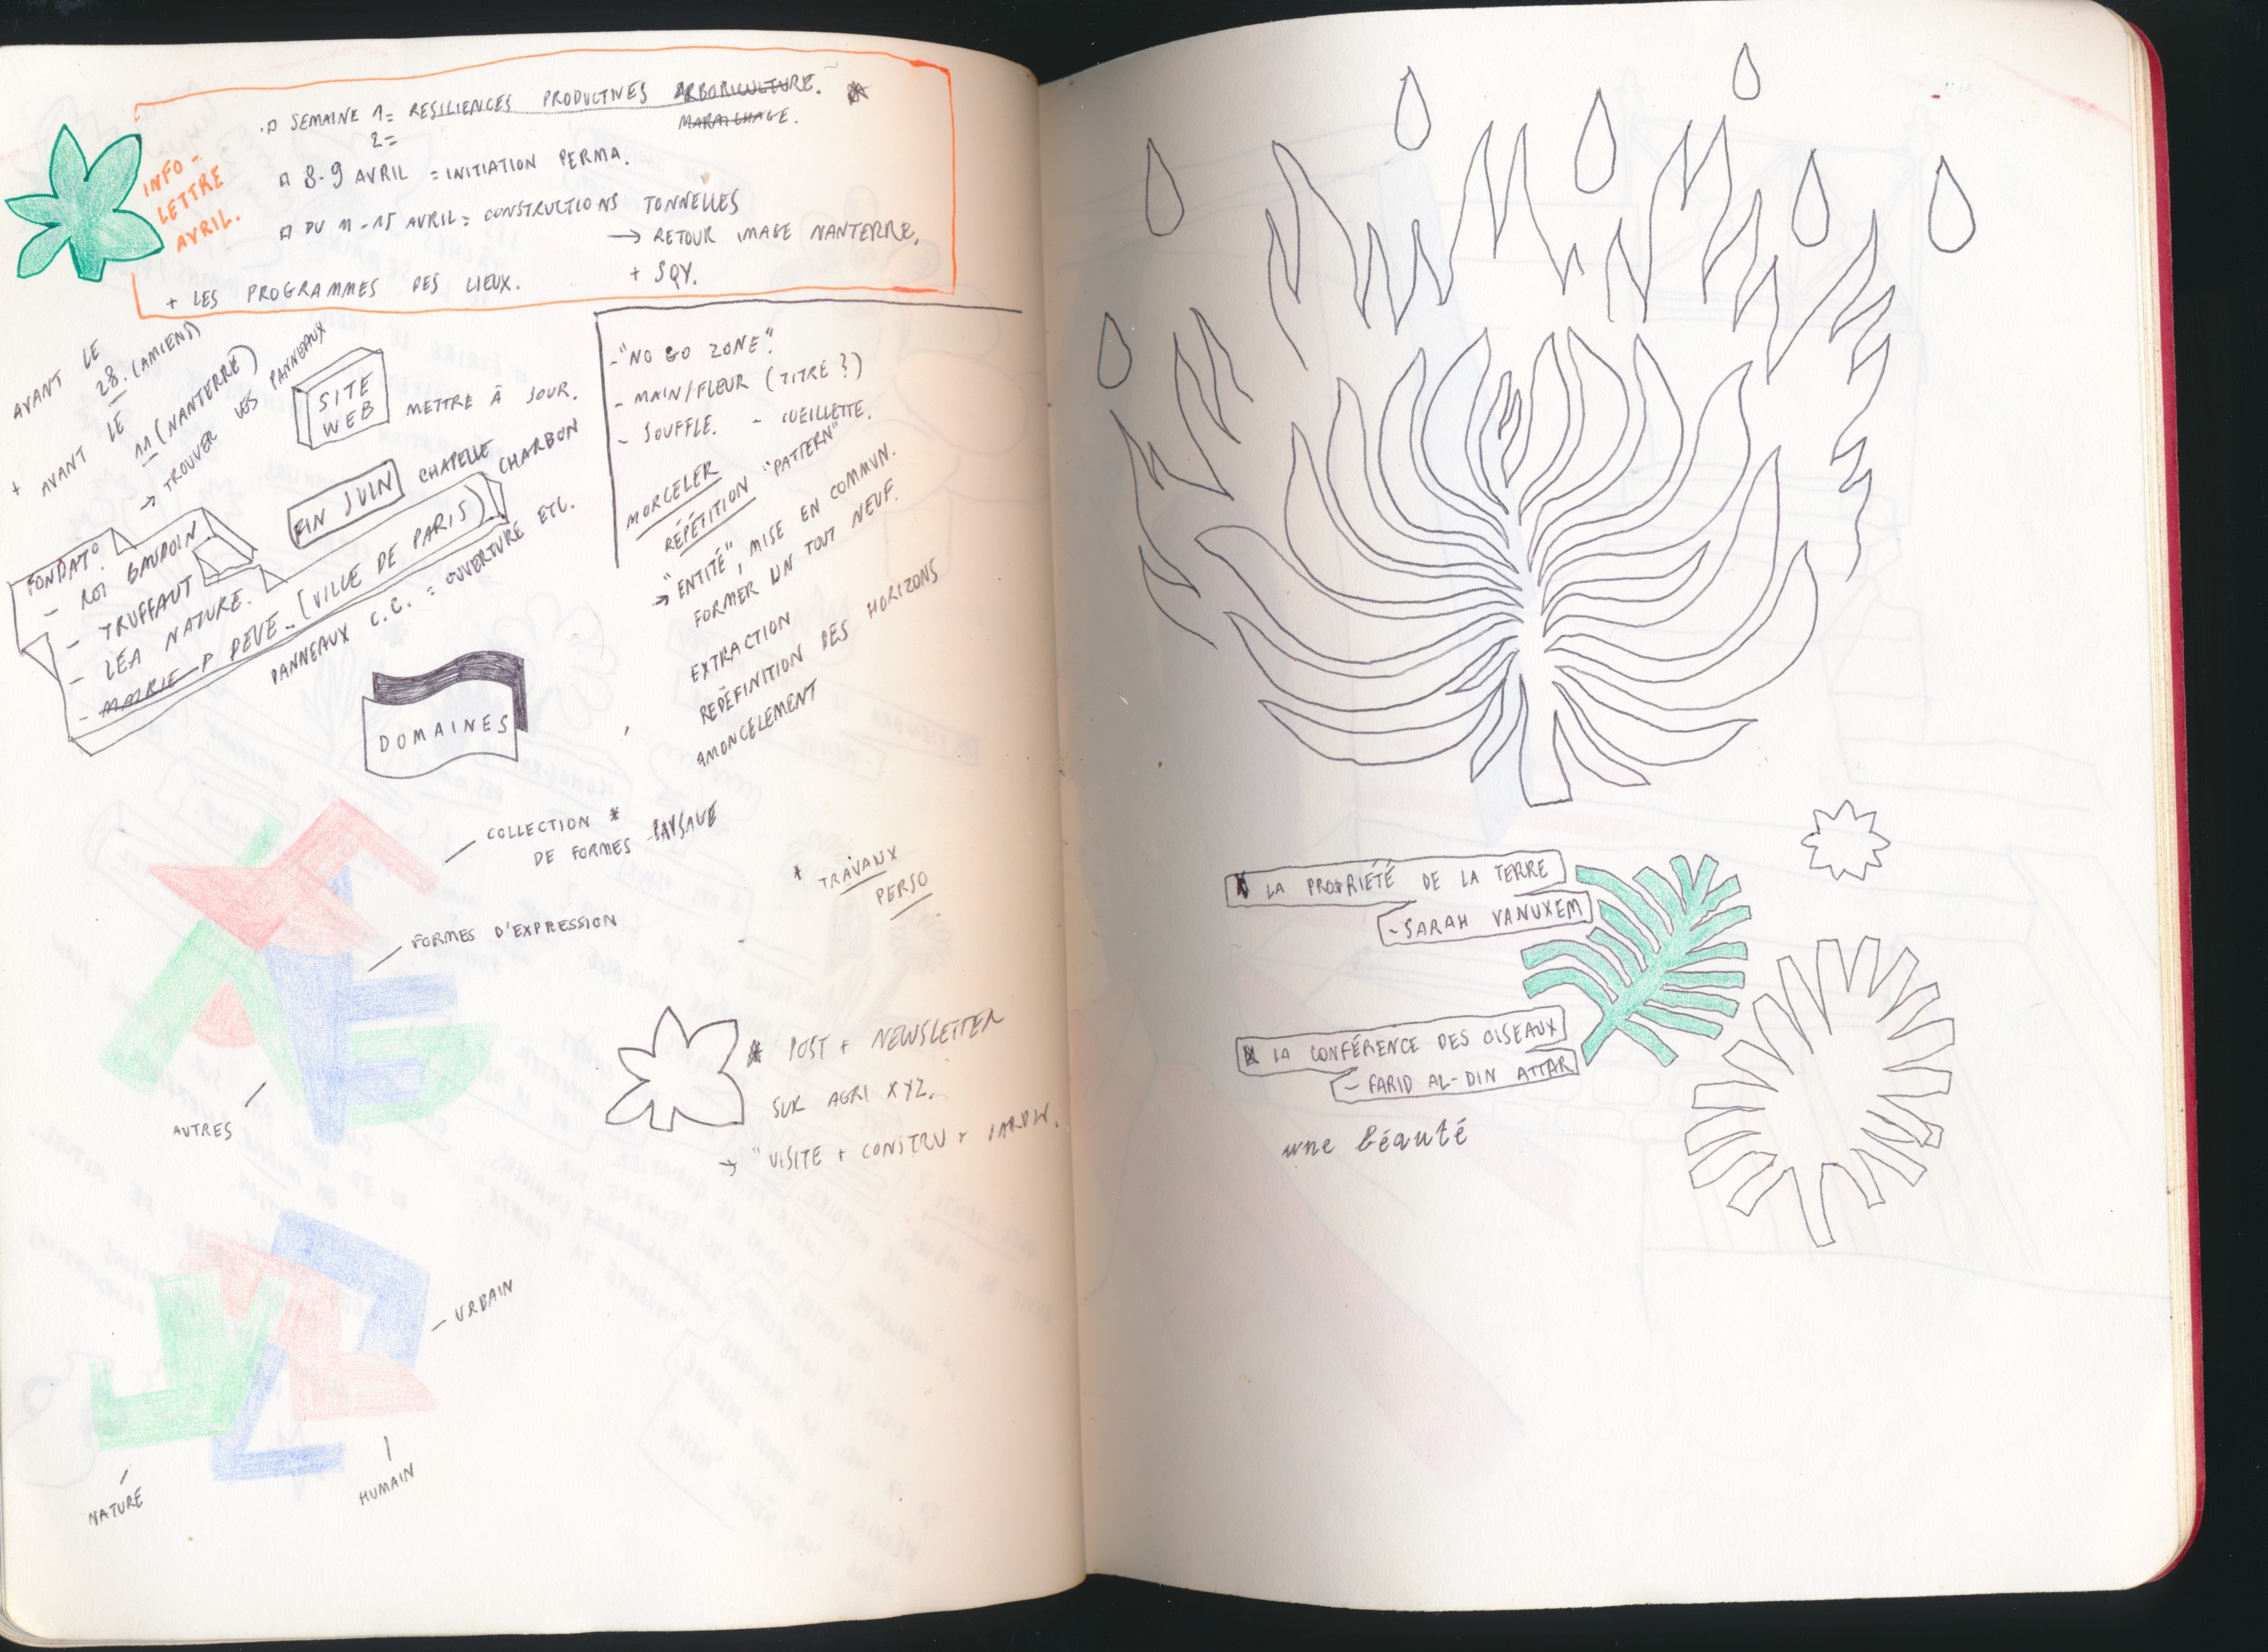 INFO-
LETTRE
AVRIL.
SEMAINE 1= RESILIENCES PRODUCTIVES ARBORICULTURE. *
2= MARAICHAGE.
8-9 AVRIL = INITIATION PERMA.
DU 11-15 AVRIL = CONSTRUCTIONS TONNELLES
→ RETOUR IMAGE NANTERRE.
+ SQY.
+ LES PROGRAMMES DES LIEUX.
AVANT LE
28. (AMIENS)
+ AVANT LE
11 (NANTERRE)
→ TROUVER LES PANNEAUX
SITE
WEB
METTRE À JOUR.
FIN JUIN CHAPELLE CHARBON
FONDAT°
- ROI BAUDOIN
- TRUFFAUT
- LÉA NATURE.
- MAIRIE P DEVE_ (VILLE DE PARIS)
PANNEAUX C.C. = OUVERTURE ETC.
-"NO GO ZONE".
- MAIN/FLEUR (TITRE ?)
- SOUFFLE. - CUEILLETTE.
MORCELER
RÉPÉTITION "PATTERN"
→ "ENTITÉ", MISE EN COMMUN.
FORMER UN TOUT NEUF.
EXTRACTION
REDÉFINITION DES HORIZONS
AMONCELEMENT
DOMAINES
COLLECTION *
DE FORMES PAYSAGE
* TRAVAUX
PERSO
FORMES D'EXPRESSION
AUTRES
* POST + NEWSLETTER
SUR AGRI XYZ.
→ "VISITE + CONSTRU + JARDIN.
URBAIN
HUMAIN
NATURE
LA PROPRIÉTÉ DE LA TERRE
- SARAH VANUXEM
LA CONFÉRENCE DES OISEAUX
- FARID AL-DIN ATTAR
une béauté